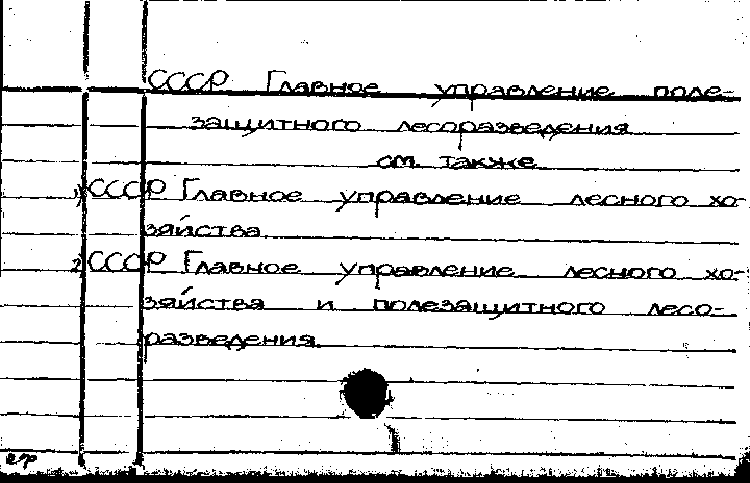 СССР Главное управление поле-
защитного лесоразведения
см. также
1) СССР Главное управление лесного хо-
зяйства.
2) СССР Главное управление лесного хо-
зяйства и полезащитного лесо-
разведения.